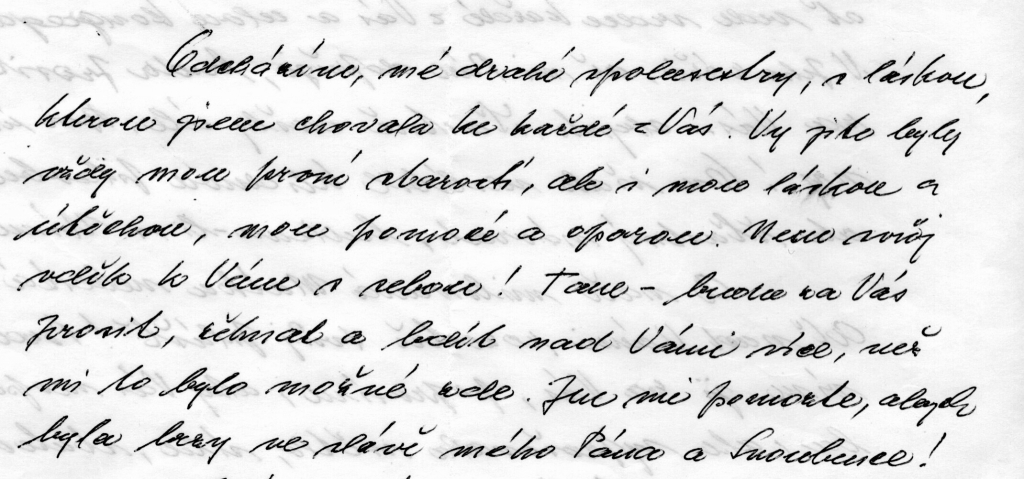 Odcházím, mé drahé spolusestry, s láskou,
kterou jsem chovala ke každé z Vás. Vy jste byly
vždy mou první starostí, ale i mou láskou a
útěchou, mou pomocí a oporou. Nesu svůj
vděk k Vám s sebou! Tam - budu za Vás
prosit, žehnat a bdít nad Vámi více, než
mi to bylo možné zde. Jen mi pomozte, abych
byla brzy ve slávě mého Pána a Snoubence!